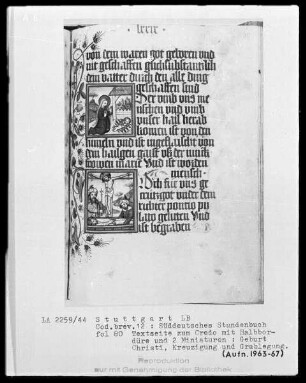 lxxx
von dem waren got geborn vnd
nit geschaffen glichsubstantzlich
dem vatter durch den alle ding
geschaffen sind
Der vmb vns me
nschen vnd vmb
vnser hail herab
komen ist von den
himeln vnd ist ingeflaischt von
dem hailgen gaist vß der iunck
frowen vnd ist worden
mensch
Och für vns ge
crutzgot vnder dem
richter pontio py
lato geliten vnd
ist begraben
LA 2259/44 Stuttgart LB
Cod.brev.12 : Süddeutsches Stundenbuch
fol 80 Textseite zum Credo mit Halbbor-
düre und 2 Miniaturen : Geburt
Christi, Kreuzigung und Grablegung.
(Aufn.1963-67)
Reproduktion
nur mit Genehmigung der Bibliothek